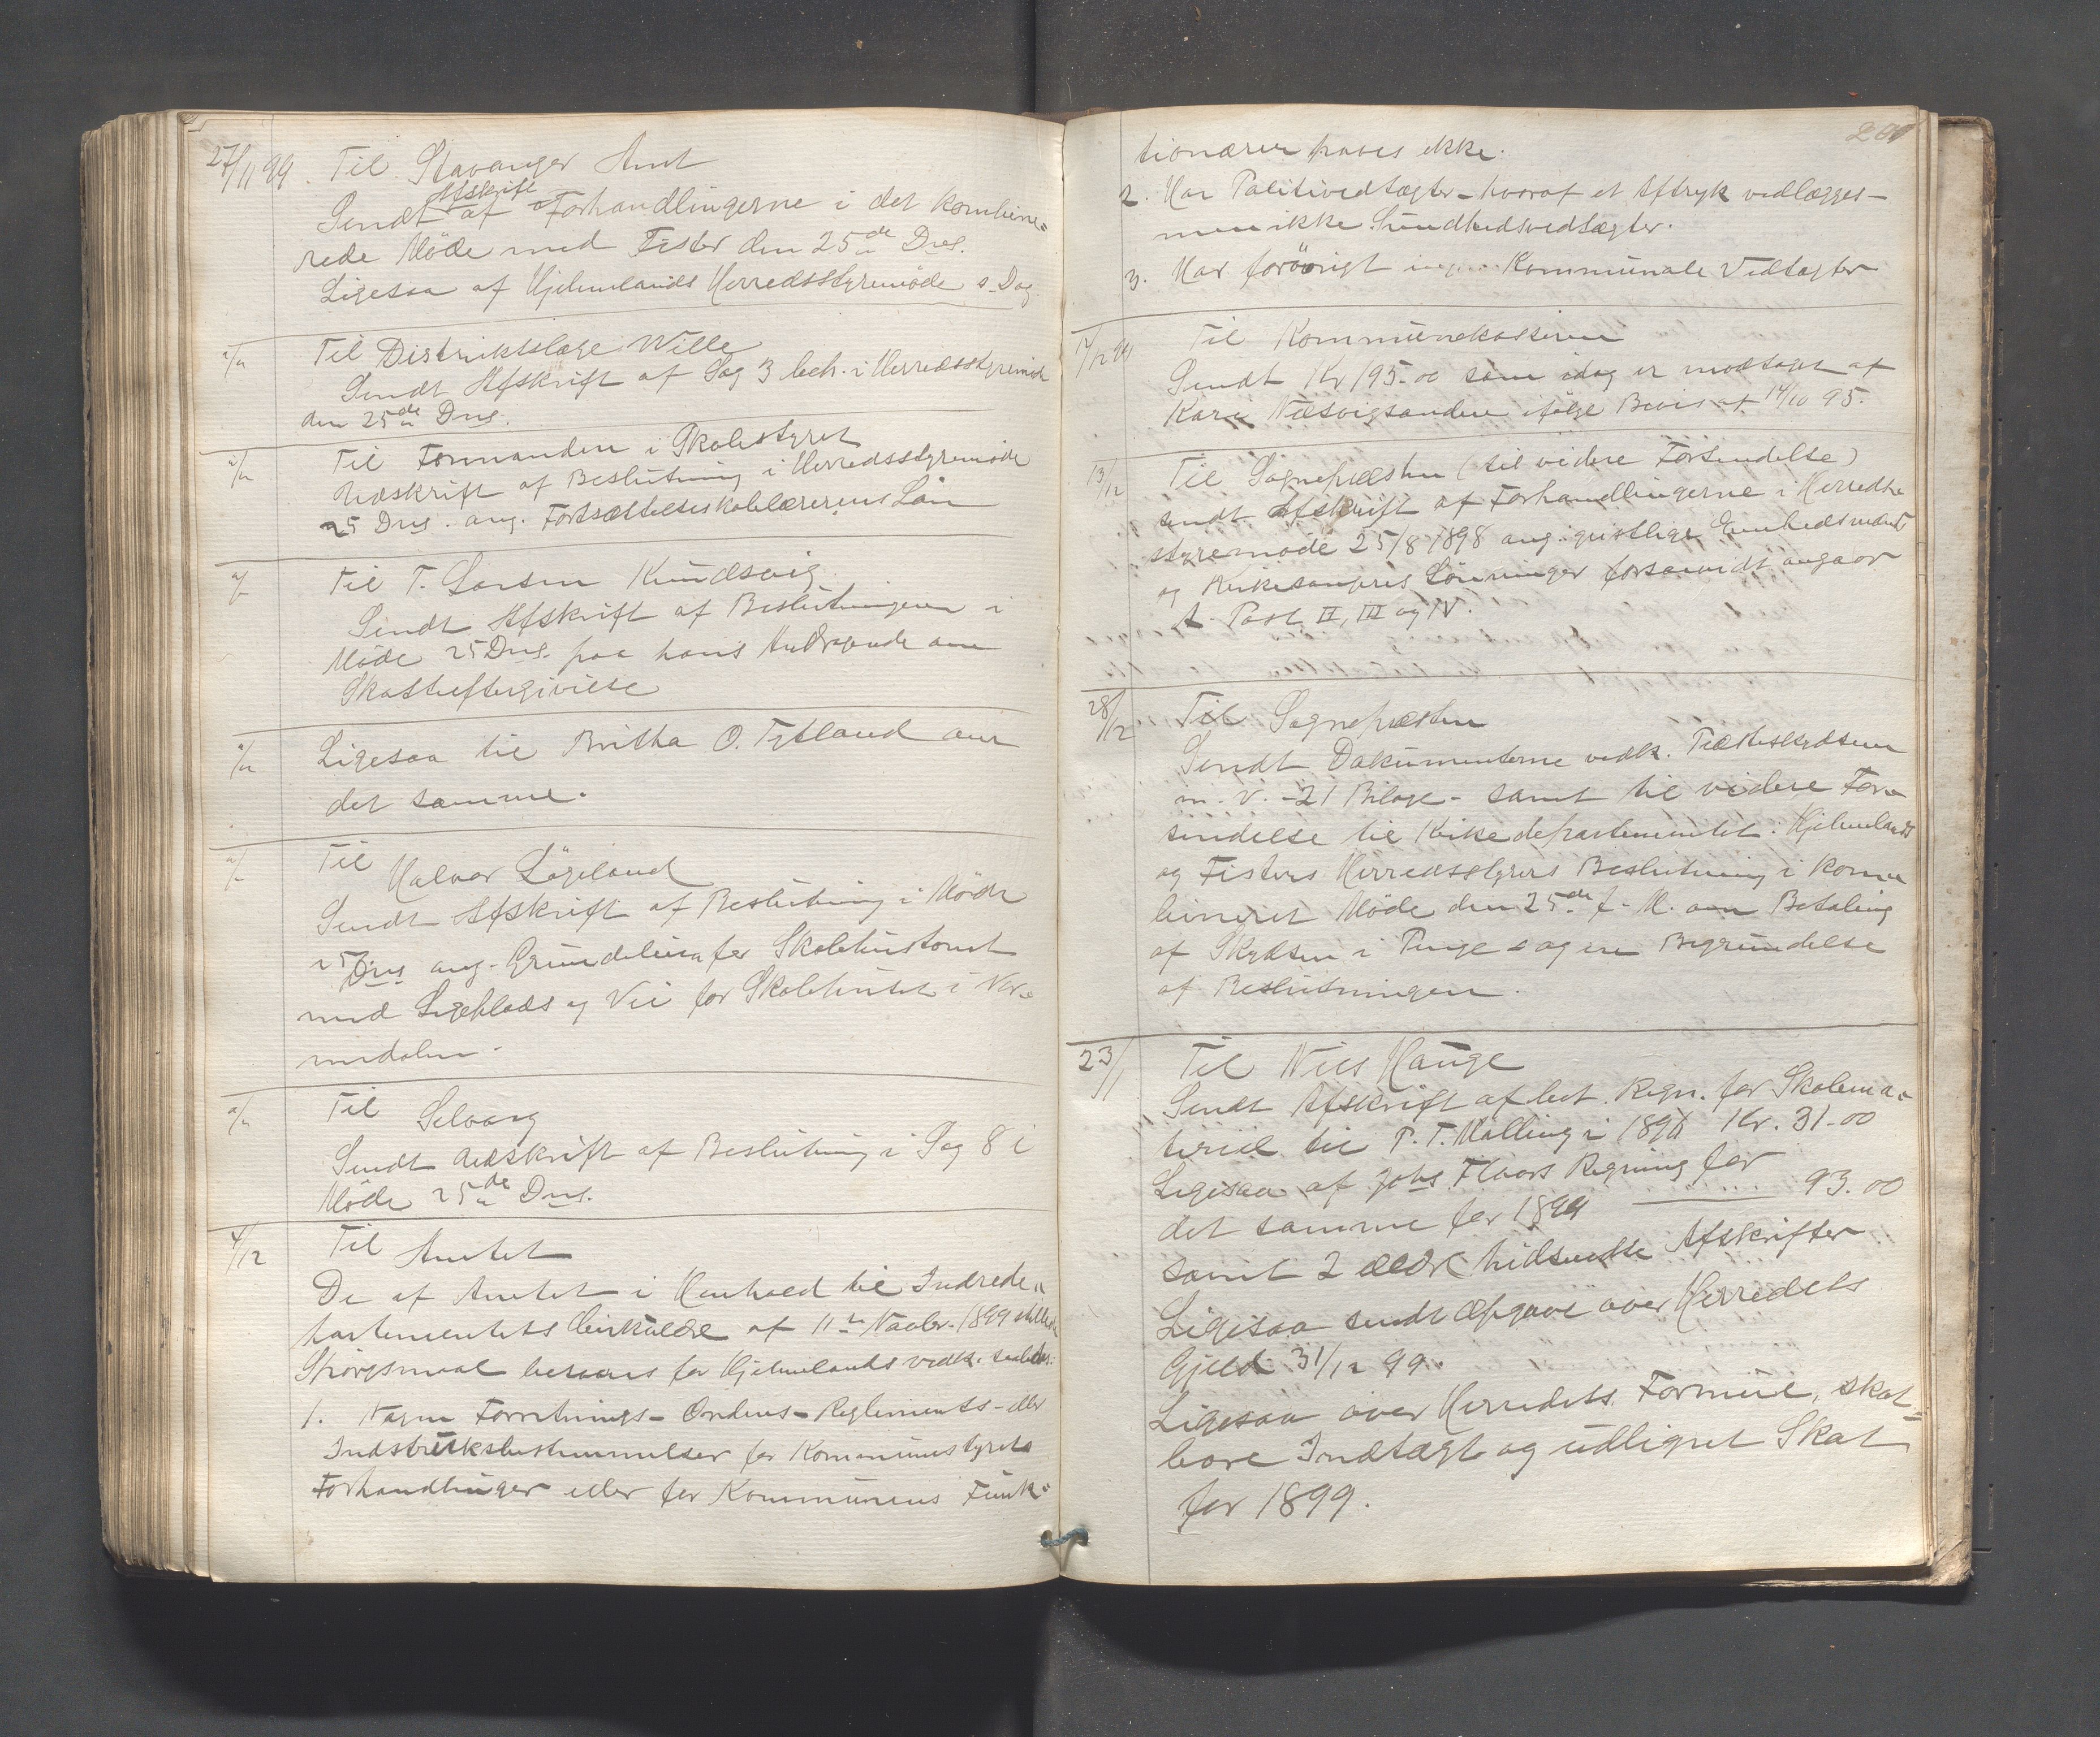 27/11 99. Til Stavanger Amt
Sendt Afskrift af Forhandlingerne i det kombine-
rede Møde med Fister den 25de Ds.
Ligesaa af Hjelmelands Herredsstyremøde s. Dag
"/" Til Distriktslæge Wille
Sendt Afskrift af Sag 3 beh. i Herredsstyremøde
den 25de Ds.
"/" Til Formanden i Skolestyret
Udskrift af Beslutning i Herredsstyremøde
25 Ds. ang. Fortsættelsesskolelærerens Løn
"/" Til T. Larsen Knudsvig
Sendt Afskrift af Beslutningen i
Møde 25 Ds. paa hans Andragende om
Skatteeftergivelse
"/" Ligesaa til Britha O. Tytland om
det samme.
"/" Til Halvor Løgeland
Sendt Afskrift af Beslutning i Møde
25 Ds ang. Grundeleien for Skolehustomt
med Legeplads og Vei for Skolehuset i
medalen.
"/" Til Selvaag
Sendt Udskrift af Beslutning i Sag 8 i
Møde 25de Ds.
4/12 Til Amtet
De af Amtet i Henhold til Indrede-
partementets Cirkulære af 11te Novbr. 1899 stillede
Spørgsmaal besvares for Hjelmelands vedk. saaledes:
1. Nogen Forretnings- Ordens- Reglements- eller
Instruksbestemmelser for Kommunestyrets
Forhandlinger eller for Kommunens Funk-
200
tionærer haves ikke.
2. Har Politivedtægter - hvoraf et Aftryk vedlægges -
men ikke Sundhedsvedtægter.
3. Har forøvrigt ingen Kommunale Vedtægter
/12 99 Til Kommunekasseren
Sendt Kr 195.00 som idag er modtaget af
Kari Næsvigsanden ifølge Bevis af 14/10 95.
13/12 Til Sognepræsten (til videre Forsendelse)
sendt Afskrift af Forhandlingerne i Herreds-
styremøde 25/8 1898 ang. geistlige Enkedsmænds
og Kirkesangers Lønninger forsaavidt angaar
A Post II, III og IV.
28/12 Til Sognepræsten
Sendt Dokumenterne vedk. Præsteskydsen
m. v. - 21 Bilage - samt til videre For-
sendelse til Kirkedepartementet: Hjelmelands
og Fisters Herredsstyrers Beslutning i kom-
bineret Møde den 25de f. M. om Betaling
af Skydsen i Penge og en Begrundelse
af Beslutningen.
23/1 Til Nils Hauge
Sendt Afskrift af bet. Regn. for Skolema-
teriel til P. T. Malling i 1898 Kr. 31.00
Ligesaa af Johs Floors Regning for
det samme for 1899 93.00
samt 2 ældre hidsendte Afskrifter
Ligesaa sendt Opgave over Herredets
Gjeld 31/12 99.
Ligesaa over Herredets Formue, skat-
bare Indtægt og udlignet Skat
for 1899.